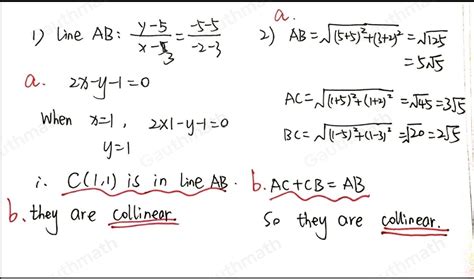 1) Line AB: (y-5)/(x-3) = (-5-5)/(-2-3)
a. 2x-y-1=0
When x=1, 2×1-y-1=0
y=1
∴ C(1,1) is in line AB.
b. they are collinear.
a.
2) AB = √((5+5)²+(3+2)²) = √125
= 5√5
AC = √((1+5)²+(1+2)²) = √45 = 3√5
BC = √((1-5)²+(1-3)²) = √20 = 2√5
b. AC+CB = AB
So they are collinear.
Gauthmath